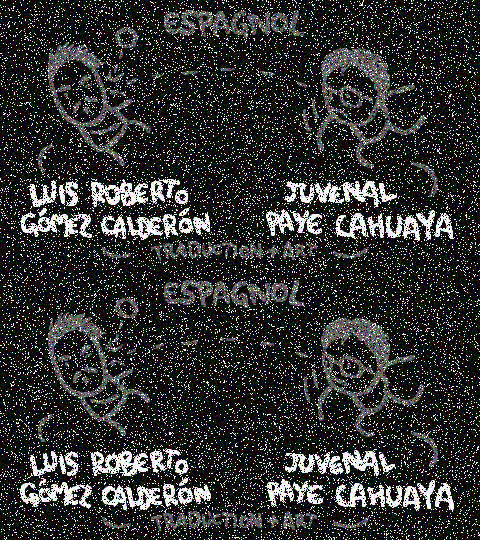 ESPAGNOL
LUIS ROBERTO
GÓMEZ CALDERÓN
JUVENAL
PAYE CAHUAYA
TRADUCTION + ART
ESPAGNOL
LUIS ROBERTO
GÓMEZ CALDERÓN
JUVENAL
PAYE CAHUAYA
TRADUCTION + ART